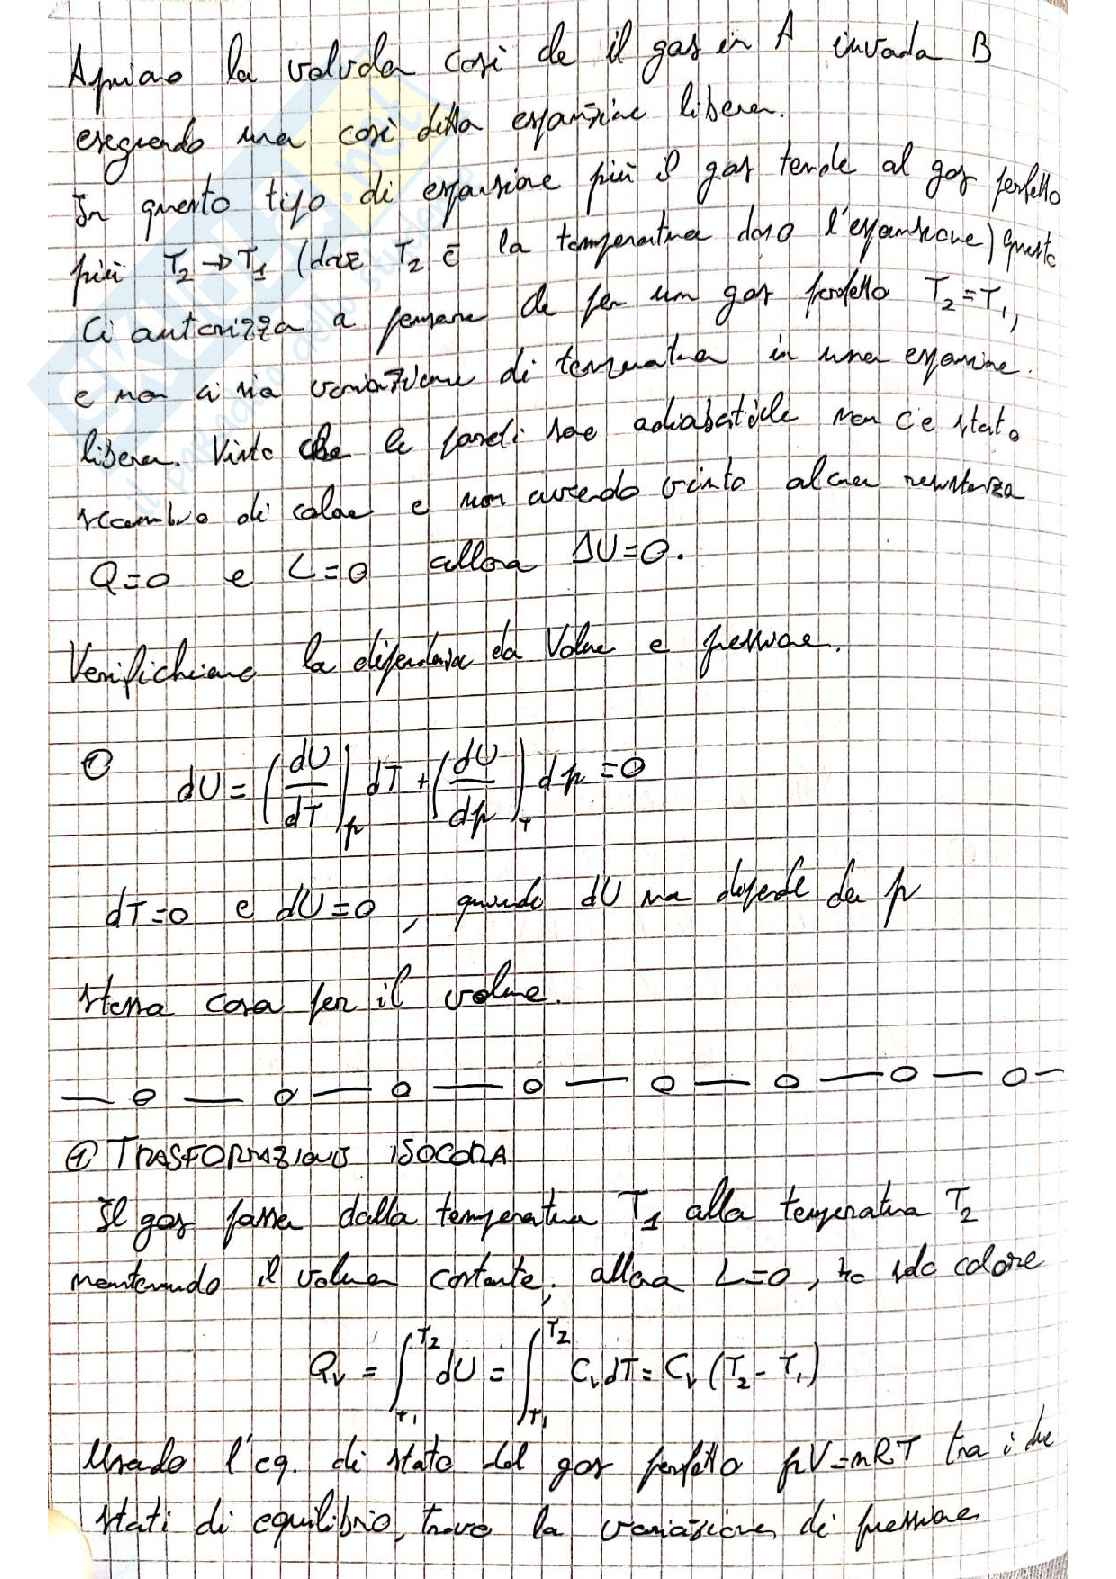 Apriamo la valvola così che il gas in A invada B
eseguendo una così detta espansione libera.
In questo tipo di espansione più il gas tende al gas perfetto
più T₂ → T₁ (dove T₂ è la temperatura dopo l'espansione) questo
ci autorizza a pensare che per un gas perfetto T₂=T₁,
e non ci sia variazione di temperatura in una espansione
libera. Visto che le pareti sono adiabatiche non c'è stato
scambio di calore e non avendo vinto alcuna resistenza
Q=0 e L=0 allora ΔU=0.
Verifichiamo la dipendenza da Volume e pressione.
dU = (dU/dT)p dT + (dU/dp)T dp = 0
dT=0 e dU=0, quindi dU non dipende da p
stessa cosa per il volume.
① TRASFORMAZIONE ISOCORA
Il gas passa dalla temperatura T₁ alla temperatura T₂
mantenendo il volume costante, allora L=0, ho solo calore
Qv = ∫T₁T₂ dU = ∫T₁T₂ Cv dT = Cv (T₂ - T₁)
Usando l'eq. di stato del gas perfetto pV=nRT tra i due
stati di equilibrio, trovo la variazione di pressione